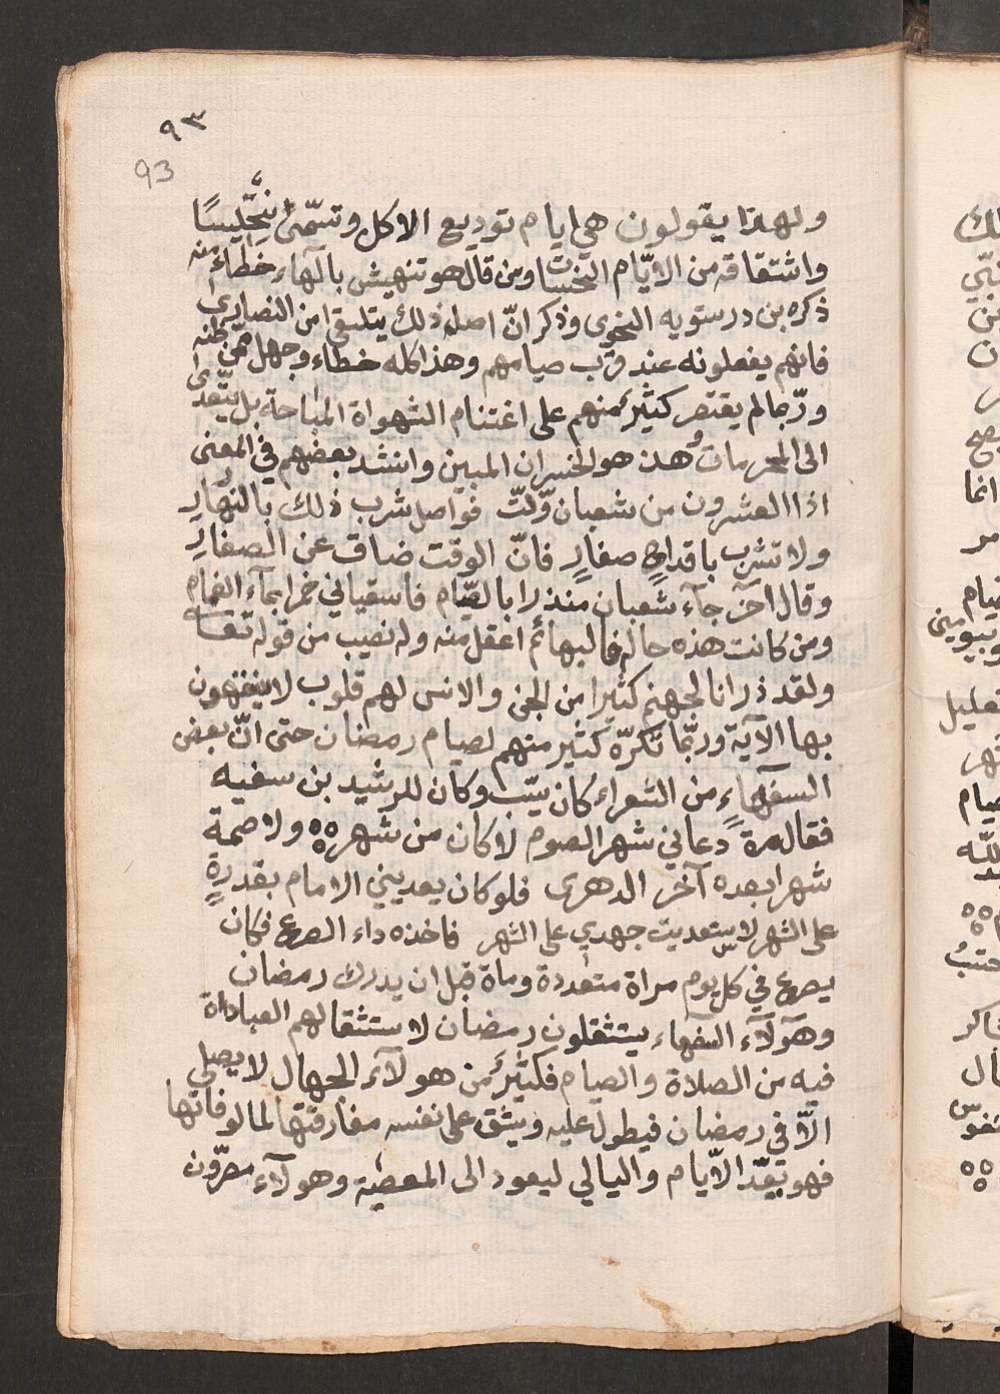 ٩٣
93
ولهذا يقولون هي ايام توديع الاكل وتسمّى تنحّيسًا
واشتقاقه من الايّام النحسات ومن قال هو تنهيش بالهاء خطاء منه
ذكره بن درستويه النحوى وذكر انّ اصله ذلك يتلقى من النصارى
فانهم يفعلونه عند قرب صيامهم وهذا كله خطاء وجهل ممّن ظنه
وربّما لم يقتصر كثيرٌ منهم على اغتنام الشهواة المباحة بل يتعدّى
الى المحرمات وهذا هو الخسران المبين وانشد بعضهم في المعنى
اذا العشرون من شعبان ولّت فواصل شرب ذلك بالنهار
ولا تشرب باقداحٍ صغارٍ فانّ الوقت ضاق عن الصغار
وقال آخر جآء شعبان منذرا بالصّيام فاسقياني خمرا بمآء الغمام
ومن كانت هذه حاله فالبهائم اعقل منه وله نصيب من قوله تعالى
ولقد ذرانا لجهنم كثيرا من الجن والانس لهم قلوب لا يفقهون
بها الآية وربّما تكرّه كثير منهم لصيام رمضان حتى انّ بعض
السفهاء من الشعراء كان يسب وكان للرشيد بن سفيه
فقال مرة دعاني شهر الصوم لا كان من شهر ٥٥ ولا صمة
شهرا بعده آخر الدهرى فلو كان يعديني الامام بقدرةٍ
على الشهر لاستعديت جهدي على الشهر فاخذه داء الصرع فكان
يصرع في كل يوم مراة متعددة وماة قبل ان يدرك رمضان
وهؤلآء السفهاء يستثقلون رمضان لاستثقالهم العباداة
فيه من الصلاة والصيام فكثيرٌ من هولآء الجهال لا يصلى
الّا في رمضان فيطول عليه ويشق على نفسه مفارقتها لمالوفاتها
فهو يعّد الايام واليالي ليعود الى المعصية وهولآء مصرّون